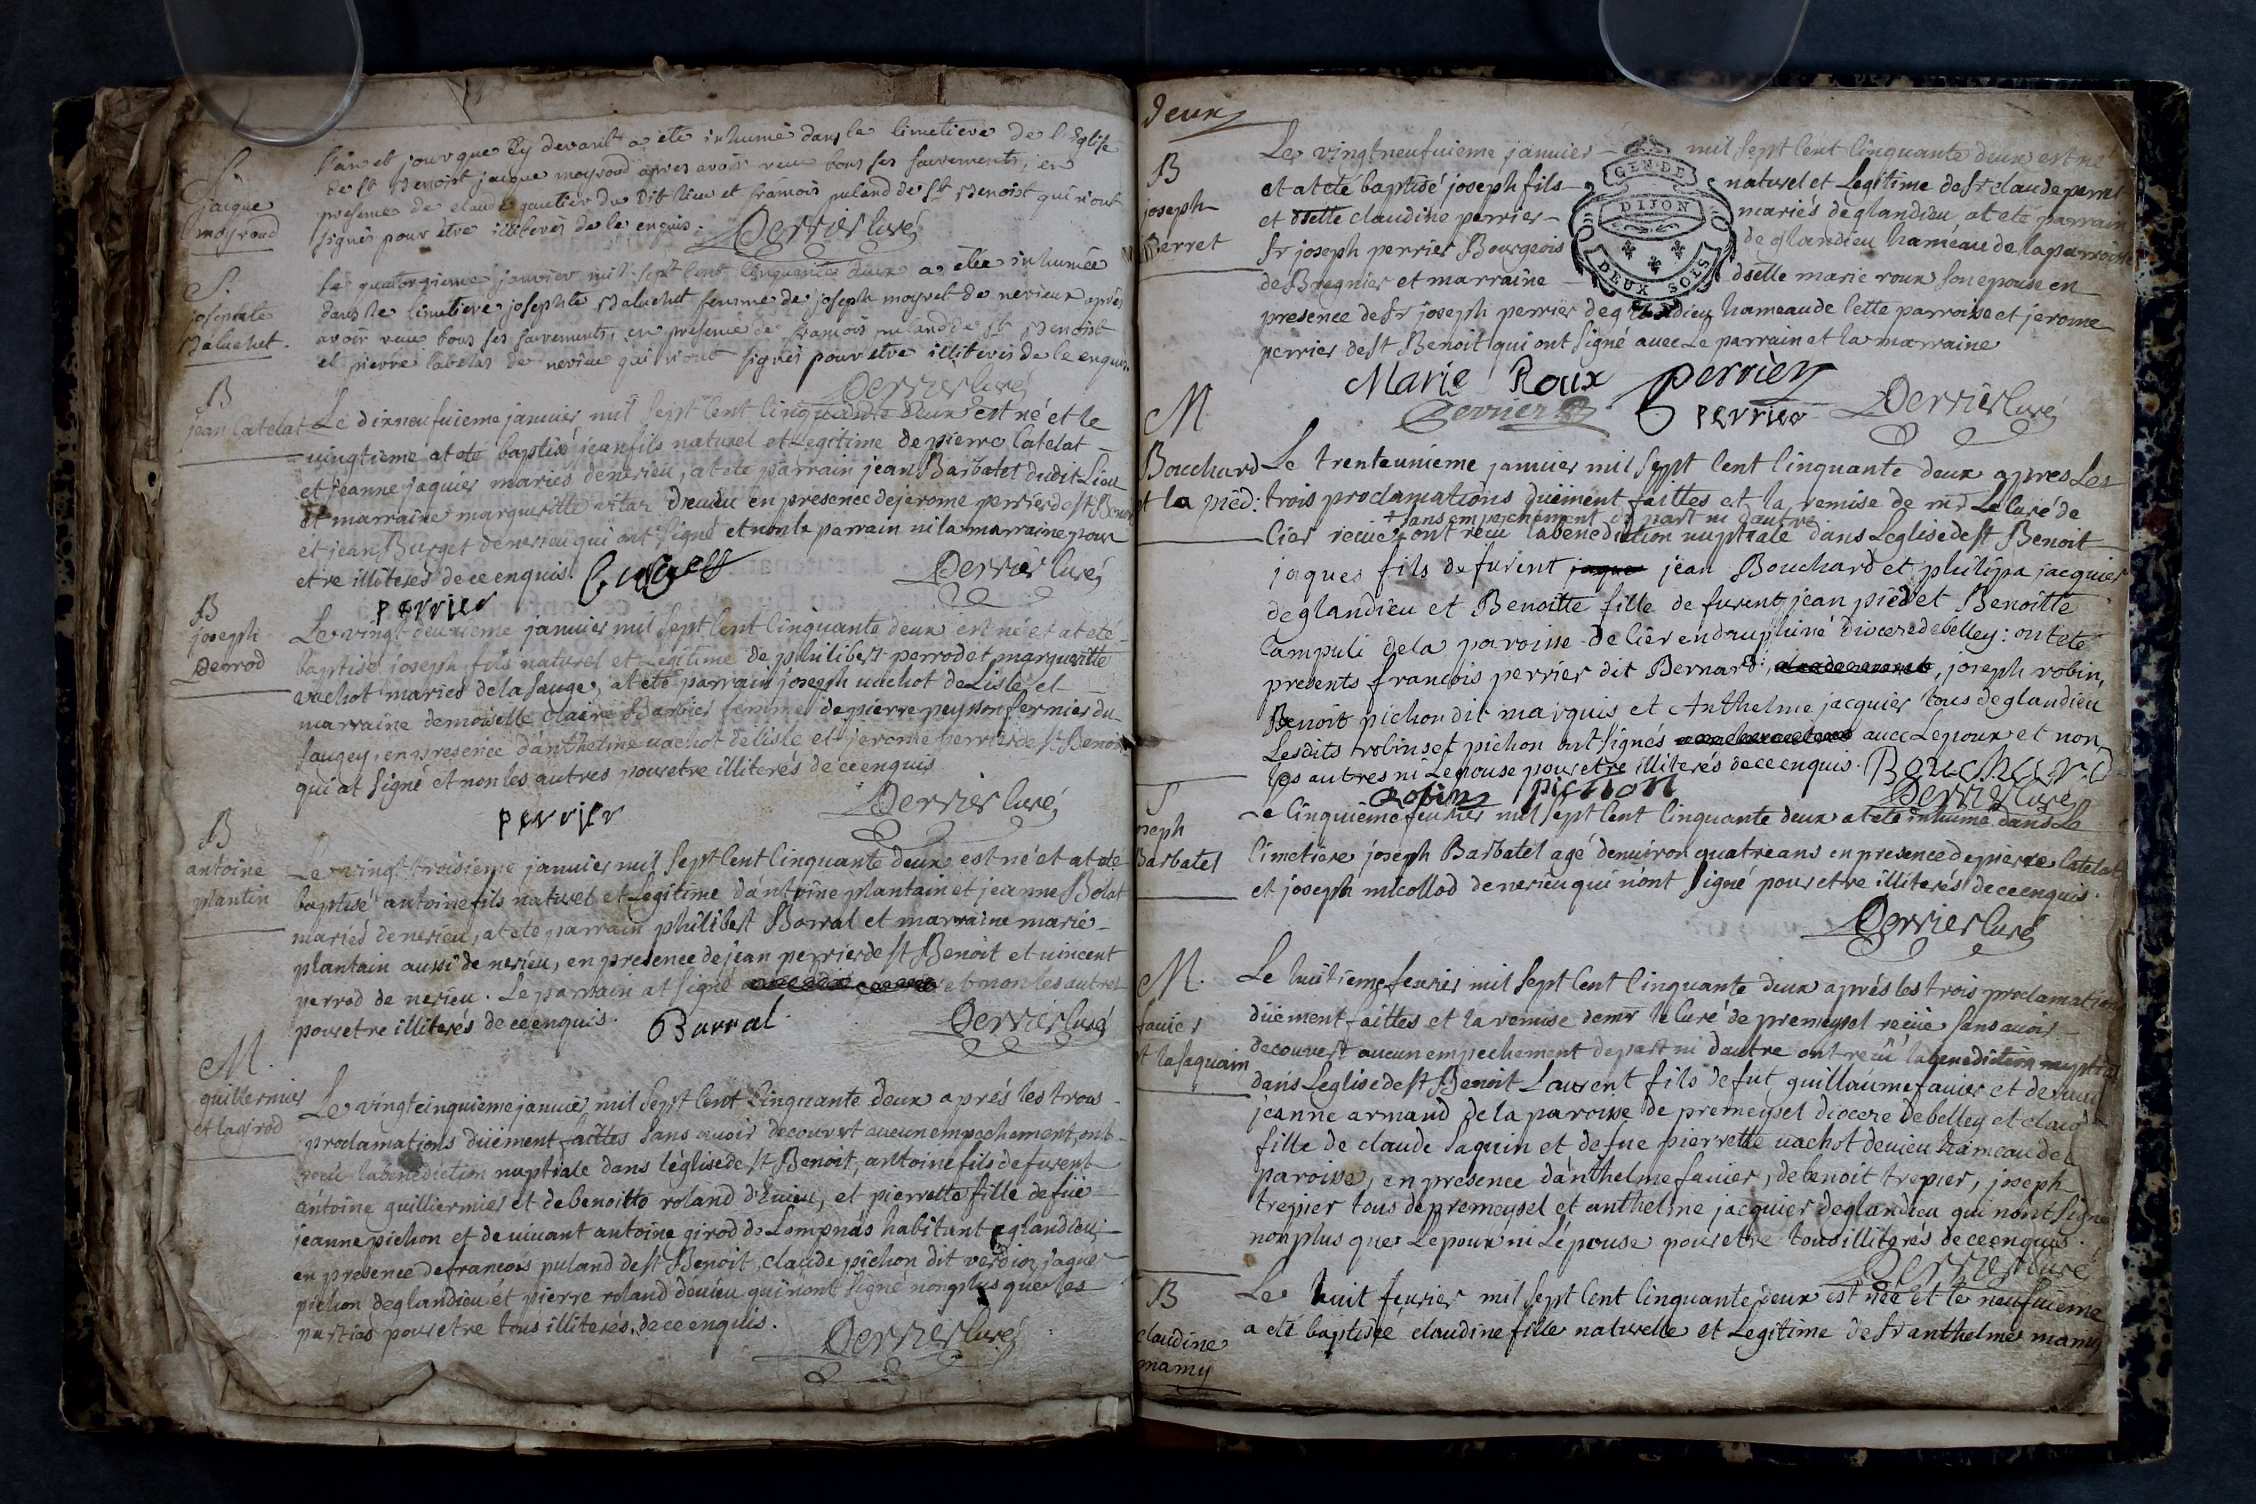 S.
jacque
moyroud
l'an et jour que cy devant a ete inhumé dans le cimetiere de l'Eglise
de St Benoist jacque moyroud apres avoir receu tous ses sacrements, en
presence de claude gautier du dit lieu et francois puland de St Benoist qui n'ont
signés pour etre illiterés de ce enquis. Perrier curé
S.
josephte
Baluchet.
Le quatorzieme janvier mil sept cent cinquante deux a etee inhumée
dans le cimetiere josephte Baluchet femme de joseph moyret de nerieux après
avoir receu tous ses sacrements, en presence de francois puland de St Benoist
et pierre catelas de nerieu qui n'ont signés pour etre illiterés de ce enquis.
Perrier curé
B
jean Catelat
Le dixneufuieme januier mil sept cent cinquante deux est né et le
uingtieme at eté baptisé jean fils naturel et Legitime de pierre Catelat
et jeanne jaquier mariés de nerieu, at eté parrain jean Barbatet dudit Lieu
et marraine margueritte uitar en presence de jerome perrier de st Benoit
et jean Burget de nerieu qui ont signé et non le parrain ni la marraine pour
etre illiterés de ce enquis. Burget Perrier curé
perrier
B
joseph
Perrod
Le vingt deuxieme januier mil sept cent cinquante deux est né et at eté
baptisé joseph fils naturel et Legitime de philibert perrod et margueritte
vachot mariés de la sauge, at eté parrain joseph uachot de Lisle et
marraine demoiselle claire Barbier femme de pierre peysson fermier du
saugey, en presence d'anthelme uachot de lisle et jerome perrier de st Benoit
qui at signé et non les autres pour etre illiterés de ce enquis
perrier Perrier curé
B
antoine
plantin
Le vingt troisieme januier mil sept cent cinquante deux est né et at eté
baptisé antoine fils naturel et Legitime d'antoine plantain et jeanne Bolat
mariés de nerieu, at eté parrain philibert Borral et marraine marie
plantain aussi de nerieu, en presence de jean perrier de st Benoit et uincent
perrod de nerieu. Le parrain at signé et non les autres
pour etre illiterés de ce enquis. Barral Perrier curé
M.
guillermier
et la girod
Le vingt cinquieme januier mil sept cent cinquante deux aprés les trois
proclamations düement faittes sans auoir decouvert aucun empechement, ont
receu la benediction nuptiale dans l'église de st Benoit, antoine fils de furent
antoine guilliermier et de benoitte roland d'Euieu, et pierrette fille de füe
jeanne pichon et de uiuant antoine girod de Lompnas habitant glandieu
en presence de francois puland de st Benoit, claude pichon dit verdion, jaques
pichon de glandieu et pierre roland d'éuieu qui n'ont signé non plus que les
parties pour etre tous illiterés, de ce enquis.
Perrier curé
deux
GEN. DE
DIJON
DEUX SOLS
B
joseph
Perret
Le vingt neufuieme januier mil sept cent cinquante deux est né
et at eté baptisé joseph fils naturel et Legitime de sr claude perret
et dselle claudine perrier mariés de glandieu at eté parrain
sr joseph perrier Bourgeois de glandieu hameau de la parroisse
de Bregnier et marraine dselle marie roux son epouse en
presence de sr joseph perrier de glandieu hameau de cette parroisse et jerome
perrier de st Benoit qui ont signé auec Le parrain et la marraine
Marie Roux perrier
perrier perrier Perrier curé
M
Bouchard
et la pied:
Le trente unieme januier mil sept cent cinquante deux apres Les
trois proclamations duëment faittes et la remise de mr Le Curé de
+ sans empechement de part ni d'autre
Cier recüe + ont recu la benediction nuptiale dans L'eglise de st Benoit
jaques fils de furent jean Bouchard et philipa jacquier
de glandieu et Benoitte fille de furent jean pied et Benoitte
Campuli de la paroisse de Cier en dauphiné diocese de belley: ont eté
presents francois perrier dit Bernard, joseph robin,
Benoit pichon dit marquis et Anthelme jacquier tous de glandieu
Lesdits robins et pichon ont signés auec Lepoux et non
les autres ni Lepouse pour etre illiterés de ce enquis. Bouchard
Robin pichon Perrier curé
S
joseph
Barbatel
Le cinquieme feurier mil sept cent cinquante deux at eté inhumé dans Le
cimetiere joseph Barbatel agé d'enuiron quatre ans en presence de pierre Catelat
et joseph micollod de nerieu qui n'ont signé pour etre illiterés de ce enquis.
Perrier curé
M.
fauier
et la saquain
Le huitieme feurier mil sept cent cinquante deux aprés les trois proclamations
düement faittes et la remise de mr le Curé de premeysel recüe sans auoir
decouvert aucun empechement de part ni d'autre ont recü la benediction nuptiale
dans L'eglise de st Benoit Laurent fils de fut guillaume fauier et de
jeanne armand de la paroisse de premeysel diocese de belley et claud
fille de claude saquin et de füe pierrette uachot d'euieu hameau de
paroisse, en presence d'anthelme fauier, de benoit trepier, joseph
trepier tous de premeysel et anthelme jacquier de glandieu qui n'ont signé
non plus que Lepoux ni L'épouse pour etre tous illiterés de ce enquis.
Perrier curé
B
claudine
mamy
Le huit feurier mil sept cent cinquante deux est née et le neufuieme
a eté baptisée claudine fille naturelle et Legitime de sr anthelme mamy